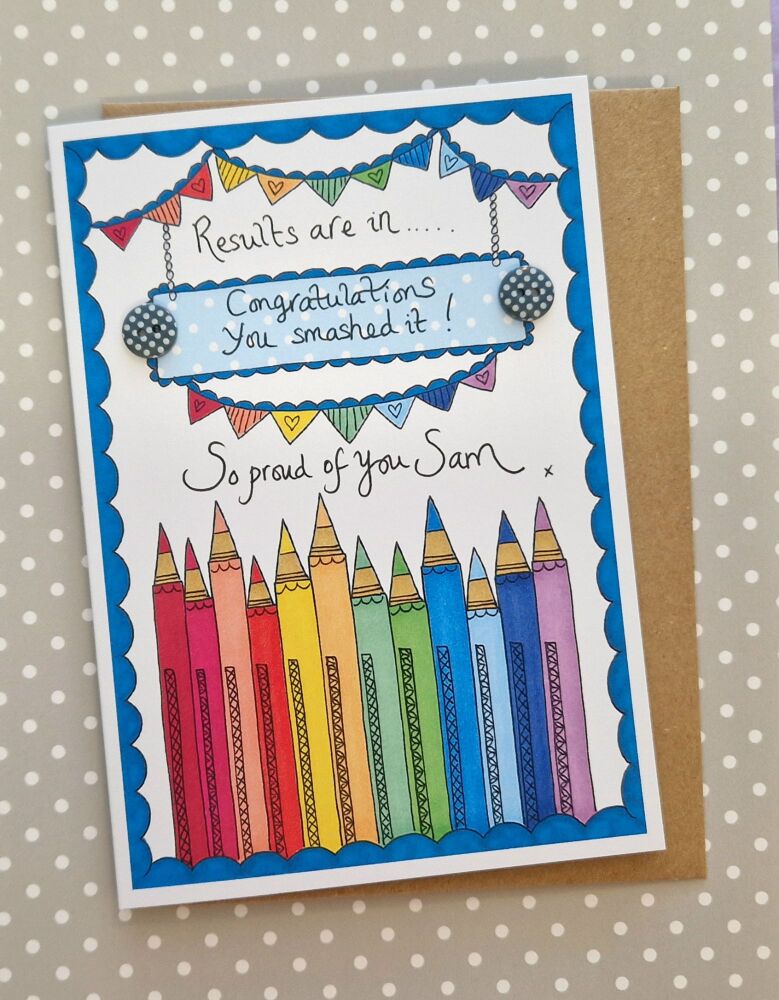 Results are in.....
Congratulations
You smashed it!
So proud of you Sam x